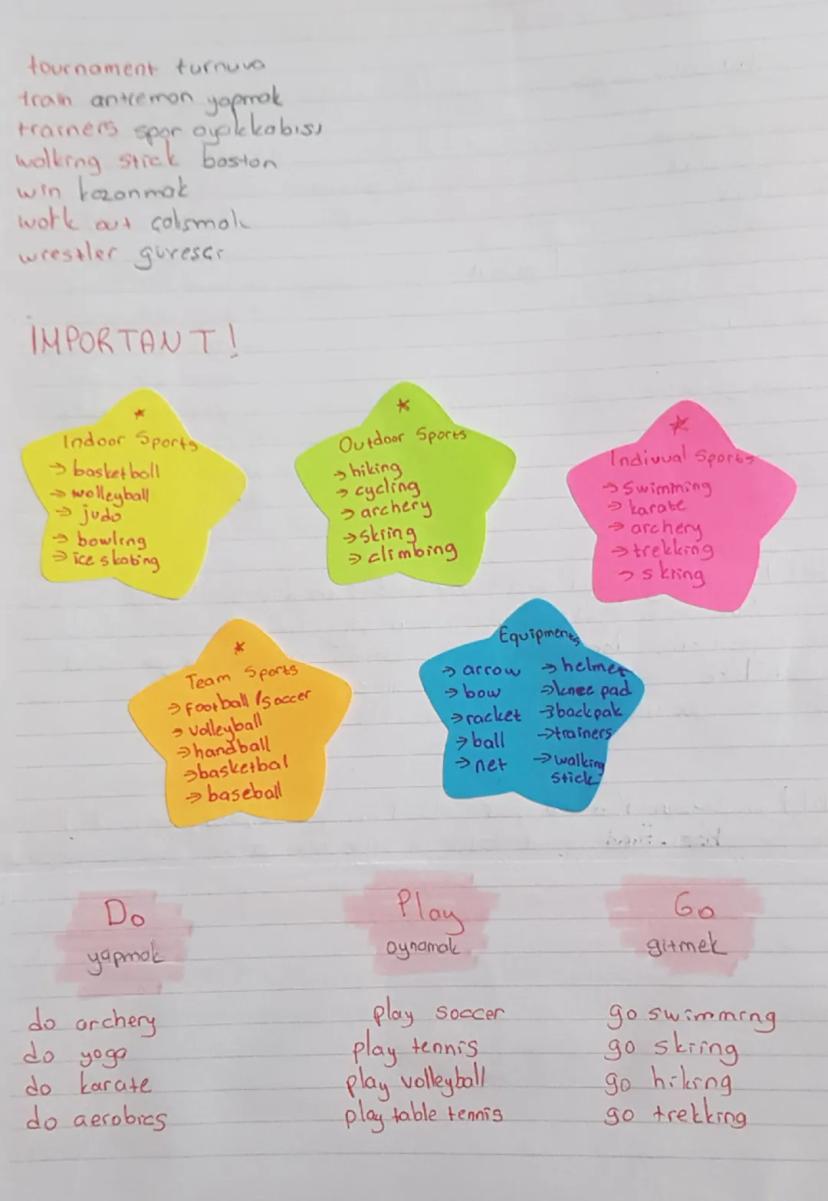 tournament turnuva
train antremon yapmak
trainers spor ayakkabısı
walking stick baston
win kazanmak
work out calısmak
wrestler güresci
İMPORTANT!
Indoor Sports
→ basketboll
→ wolleyball
→ judo
→ bowling
→ ice skating
Outdoor Sports
→ hiking
→ cycling
→ archery
→ skiing
→ climbing
Indivual Sports
→ swimming
→ karate
→ archery
→ trekking
→ skiing
Team Sports
→ football/soccer
→ volleyball
→ handball
→ basketbal
→ baseball
Equipments
→ arrow
→ bow
→ racket
→ ball
→ net
→ helmet
→ knee pad
→ backpak
→ trainers
→ walking
stick
Do
yapmak
do archery
do yoga
do karate
do aerobics
Play
oynamak
play soccer
play tennis
play volleyball
play table tennis
Go
gitmek
go swimming
go skiing
go hiking
go trekking